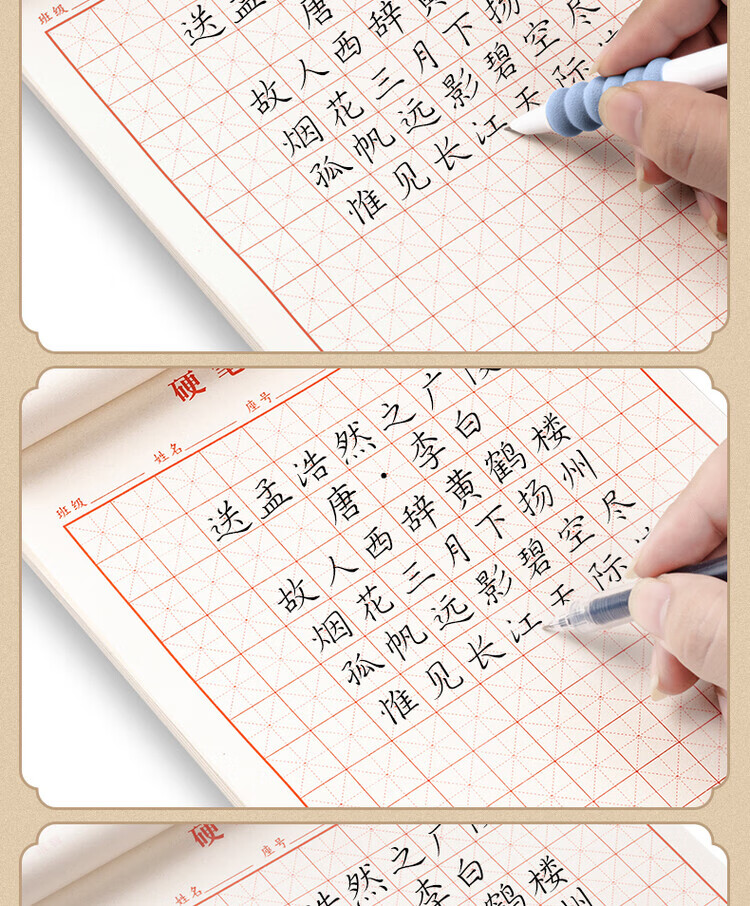 班级
送孟
唐
故人西辞黄
烟花三月下扬
孤帆远影碧空尽
惟见长江天际
硬笔
班级 姓名 座号
送孟浩然之广
唐·李白
故人西辞黄鹤楼
烟花三月下扬州
孤帆远影碧空尽
惟见长江天际
硬
姓名 座号
浩然之广
李白
黄鹤楼
州